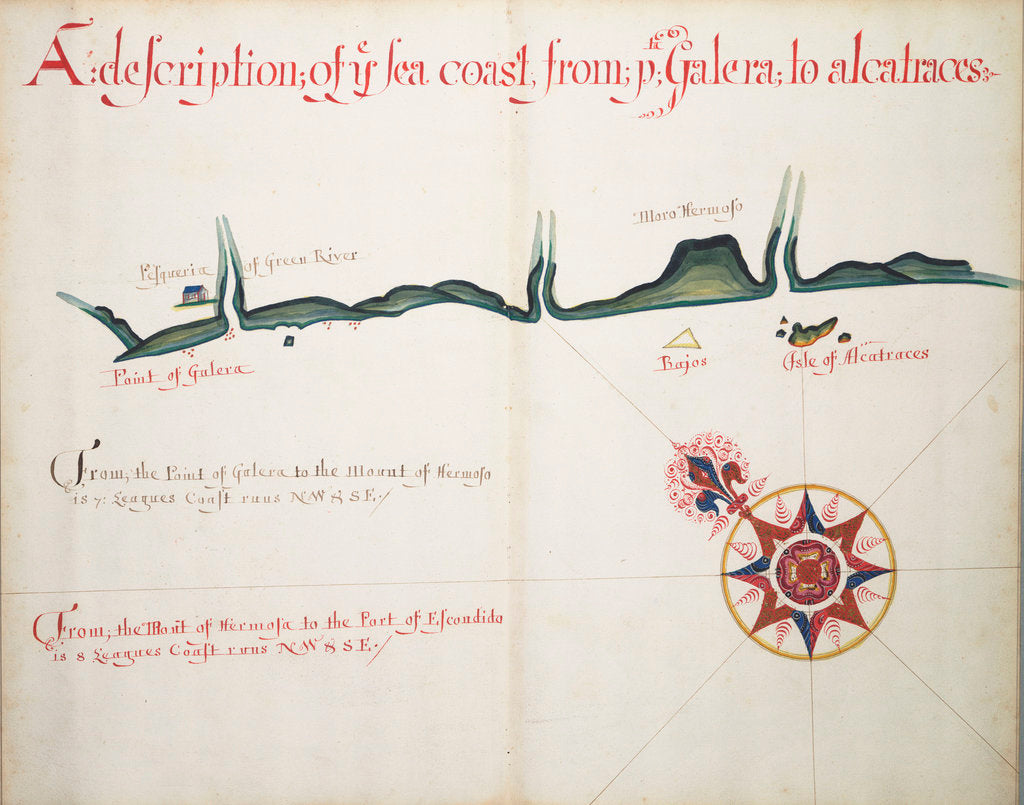 A: description; of yͤ sea coast, from; pͭ; Galera; to alcatraces:~
Moro Hermoso
Pesqueria of Green River
Point of Galera
Bajos
Isle of Alcatraces
From; the Point of Galera to the Mount of Hermoso
is 7: Leagues Coast runs NW & SE:/
From; the Mont of Hermosa to the Port of Escondido
is 8 Leagues Coast runs NW & SE:/